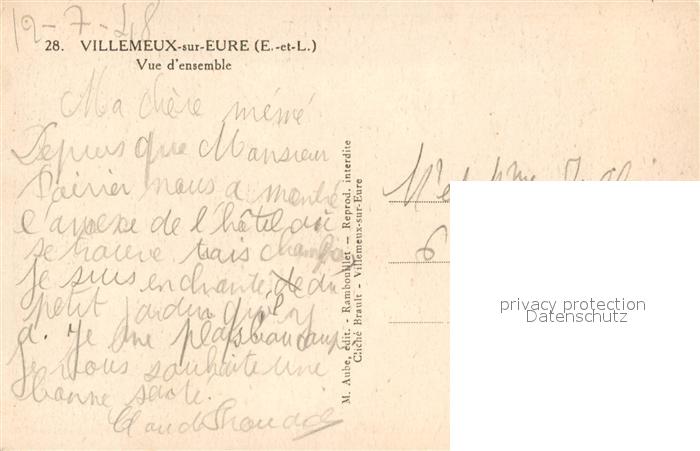 12-7-48
28. VILLEMEUX-sur-EURE (E.-et-L.)
Vue d'ensemble
Ma chère mémé
Depuis que Monsieur
Poirier nous a montré
l'annexe de l'hôtel où
se trouve trois chambres
je suis enchanté de du
petit jardin qu'il y
a. Je me plais beaucoup
Je vous souhaite une
bonne santé.
Claude
M. Aube, édit. - Rambouillet — Reprod. interdite
Cliché Brault - Villemeux-sur-Eure
6
privacy protection
Datenschutz